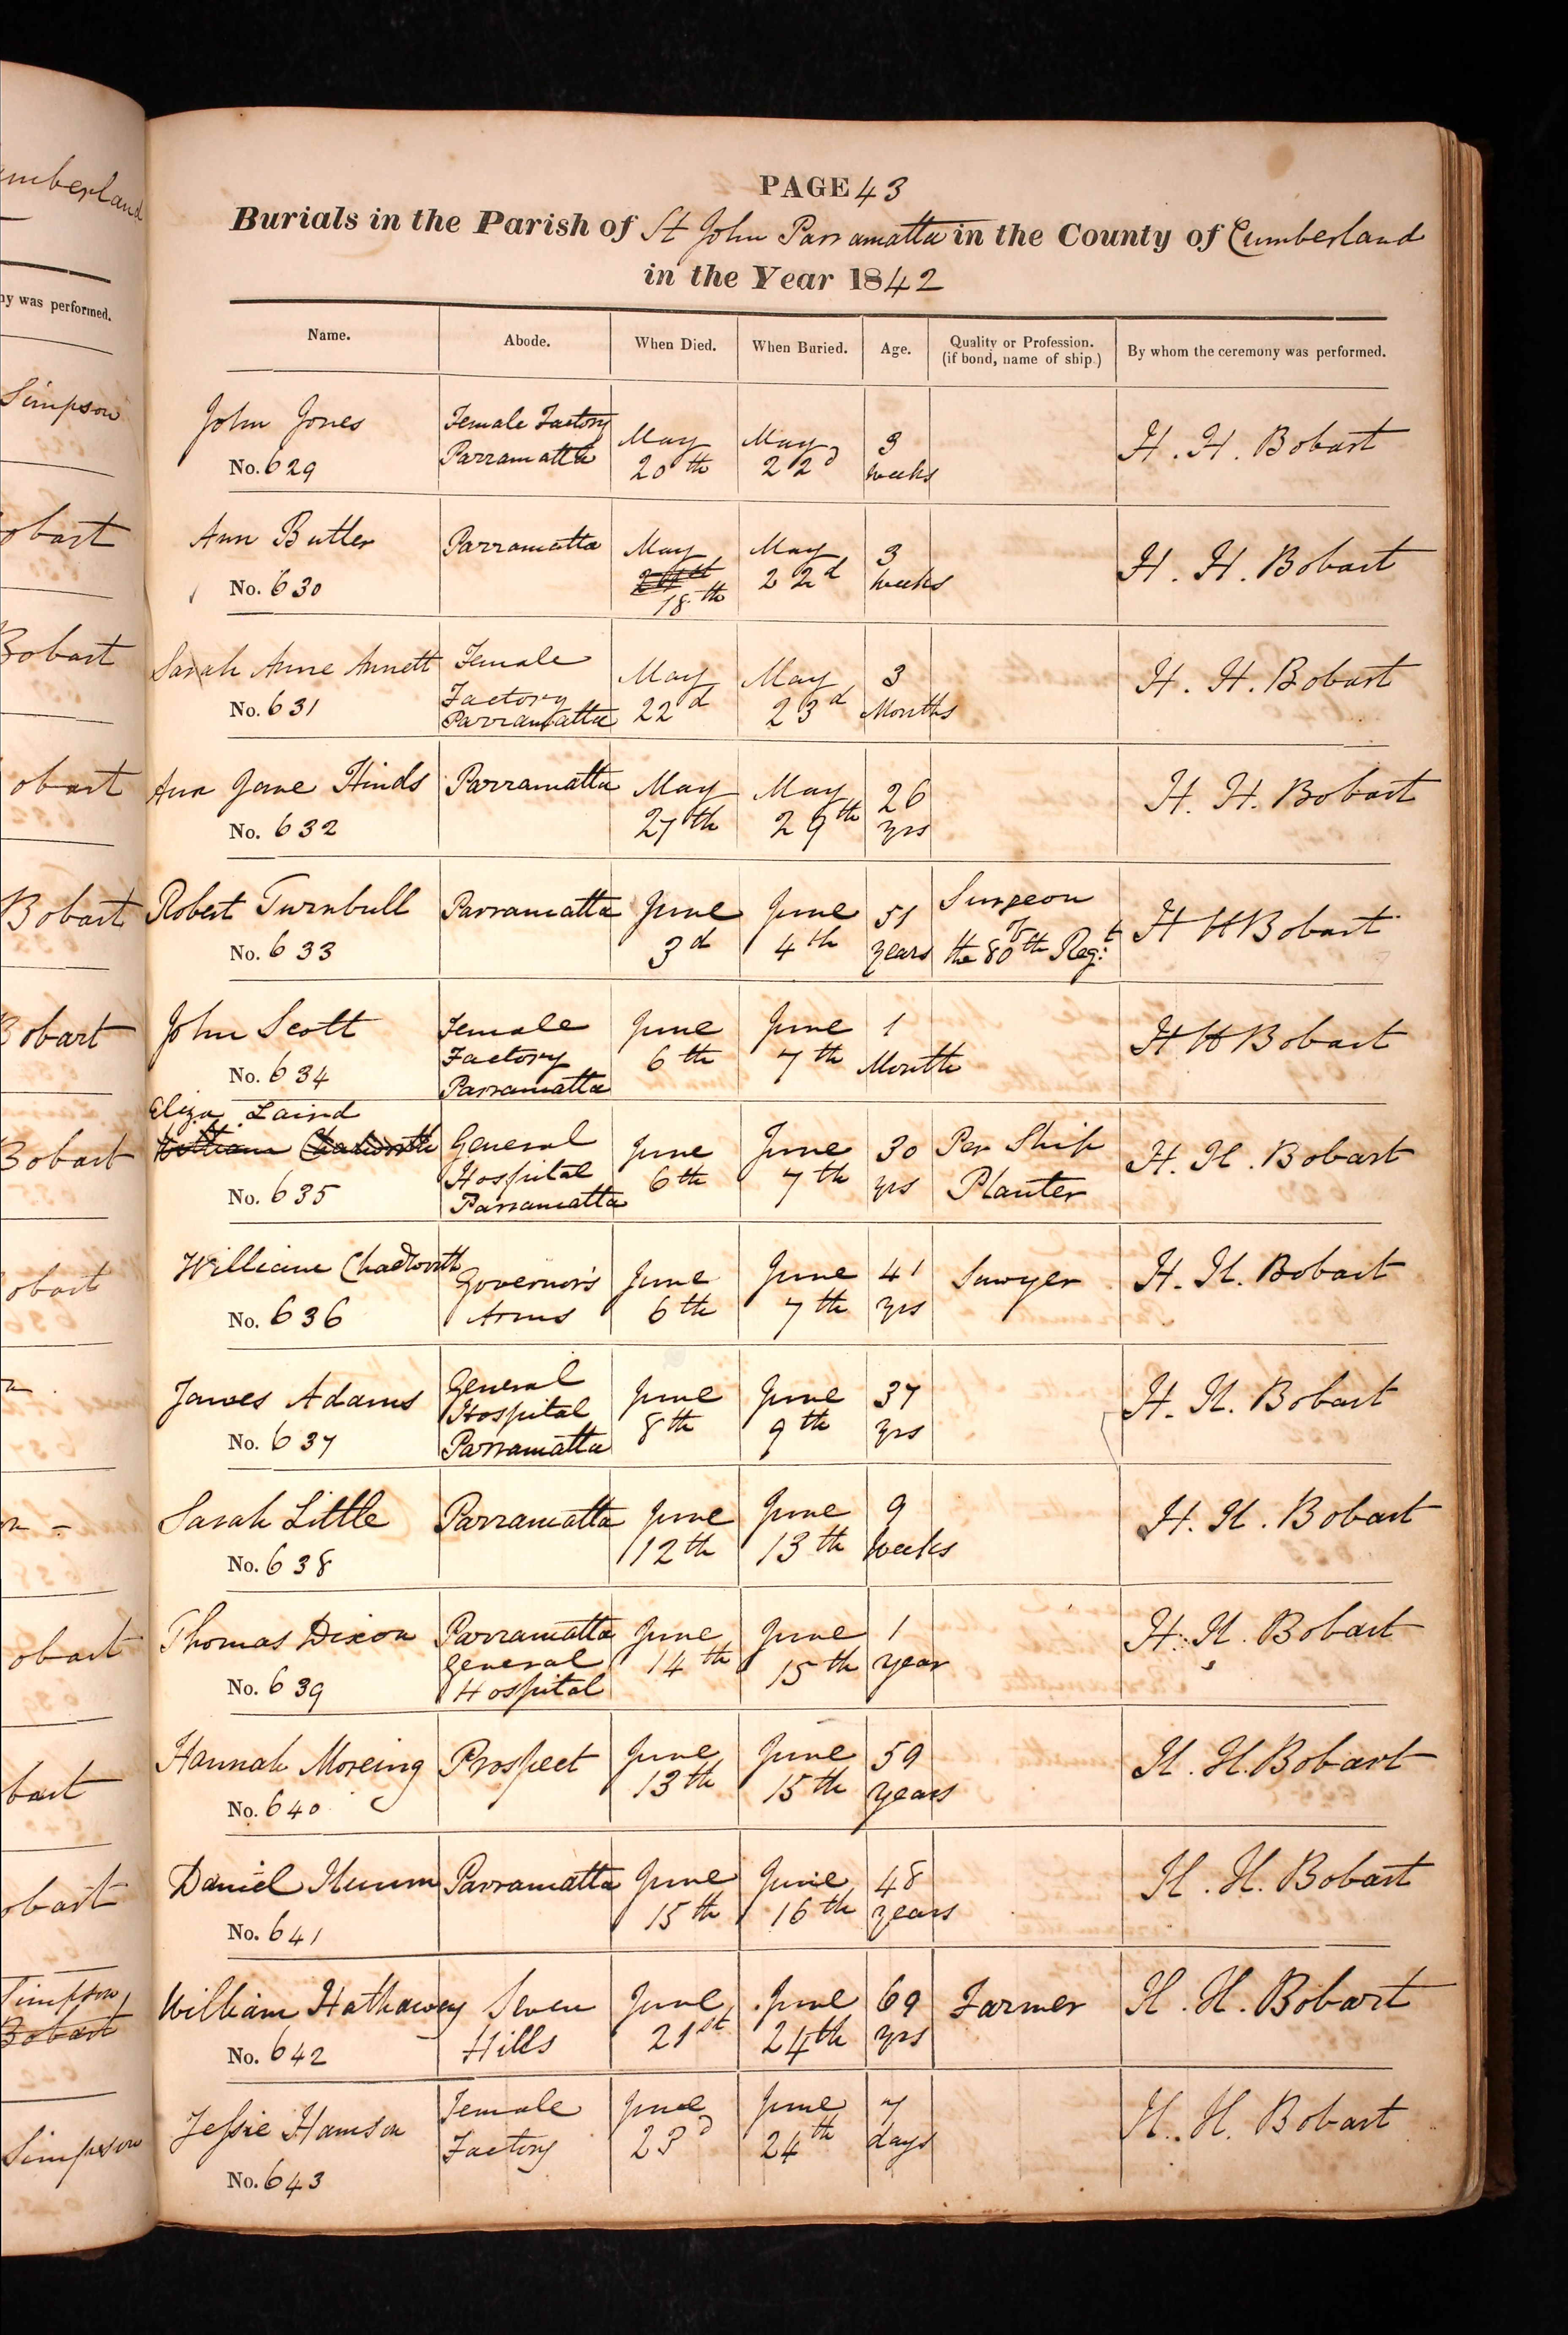 umberland
ny was performed.
Simpson
obart
Bobart
obart
Bobart
Bobart
Bobart
obart
obart
bart
obart
Simpson
Bobart
Simpson
PAGE 43
Burials in the Parish of St John Parramatta in the County of Cumberland
in the Year 1842
Name. Abode. When Died. When Buried. Age. Quality or Profession. (if bond, name of ship.) By whom the ceremony was performed.
John Jones Female Factory Parramatta May 20th May 22d 3 weeks H. H. Bobart
No. 629
Ann Butler Parramatta May 21st 18th May 22d 3 weeks H. H. Bobart
No. 630
Sarah Anne Annett Female Factory Parramatta May 22d May 23d 3 Months H. H. Bobart
No. 631
Ann Jane Hinds Parramatta May 27th May 29th 26 yrs H. H. Bobart
No. 632
Robert Turnbull Parramatta June 3d June 4th 51 years Surgeon of the 80th Regt. H H Bobart
No. 633
John Scott Female Factory Parramatta June 6th June 7th 1 Month H H Bobart
No. 634
Eliza Laird
William Chadworth General Hospital Parramatta June 6th June 7th 30 yrs Per Ship Planter H. H. Bobart
No. 635
William Chadworth Governor's Arms June 6th June 7th 41 yrs Sawyer H. H. Bobart
No. 636
James Adams General Hospital Parramatta June 8th June 9th 37 yrs H. H. Bobart
No. 637
Sarah Little Parramatta June 12th June 13th 9 Weeks H. H. Bobart
No. 638
Thomas Dixon Parramatta General Hospital June 14th June 15th 1 year H. H. Bobart
No. 639
Hannah Moreing Prospect June 13th June 15th 59 years H. H. Bobart
No. 640
Daniel Parramatta June 15th June 16th 48 years H. H. Bobart
No. 641
William Hathaway Seven Hills June 21st June 24th 69 yrs Farmer H. H. Bobart
No. 642
Jessie Female Factory June 23d June 24th 7 days H. H. Bobart
No. 643